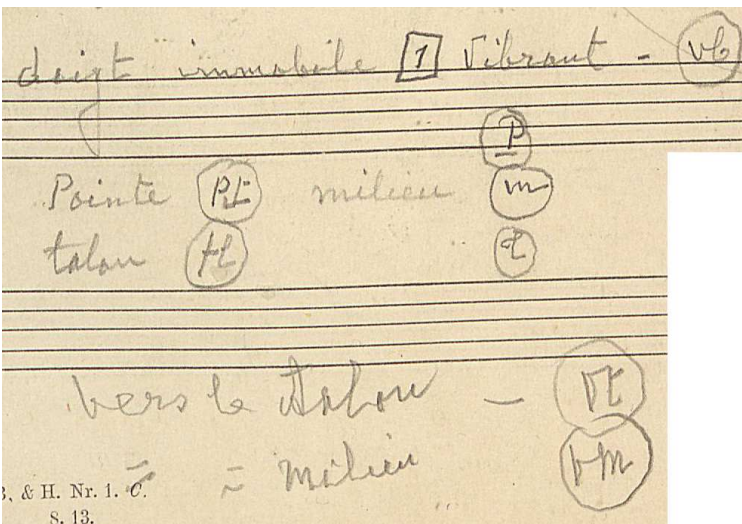 doigt immobile 1 Vibrant - vb
P
Pointe Pt milieu m
talon tl t
vers le talon - Vt
= = milieu vm
B. & H. Nr. 1. C.
S. 13.